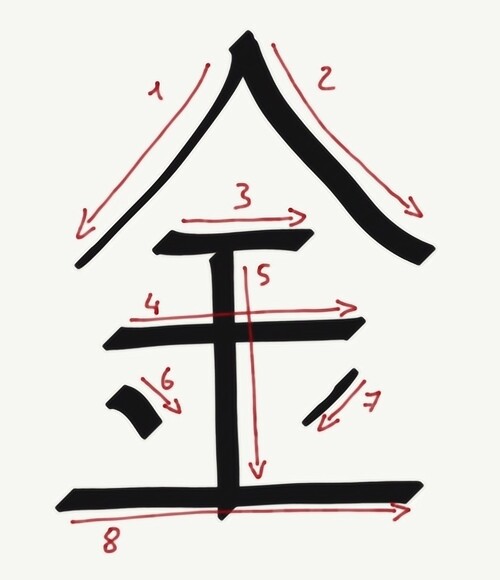 金
1 2 3 4 5 6 7 8